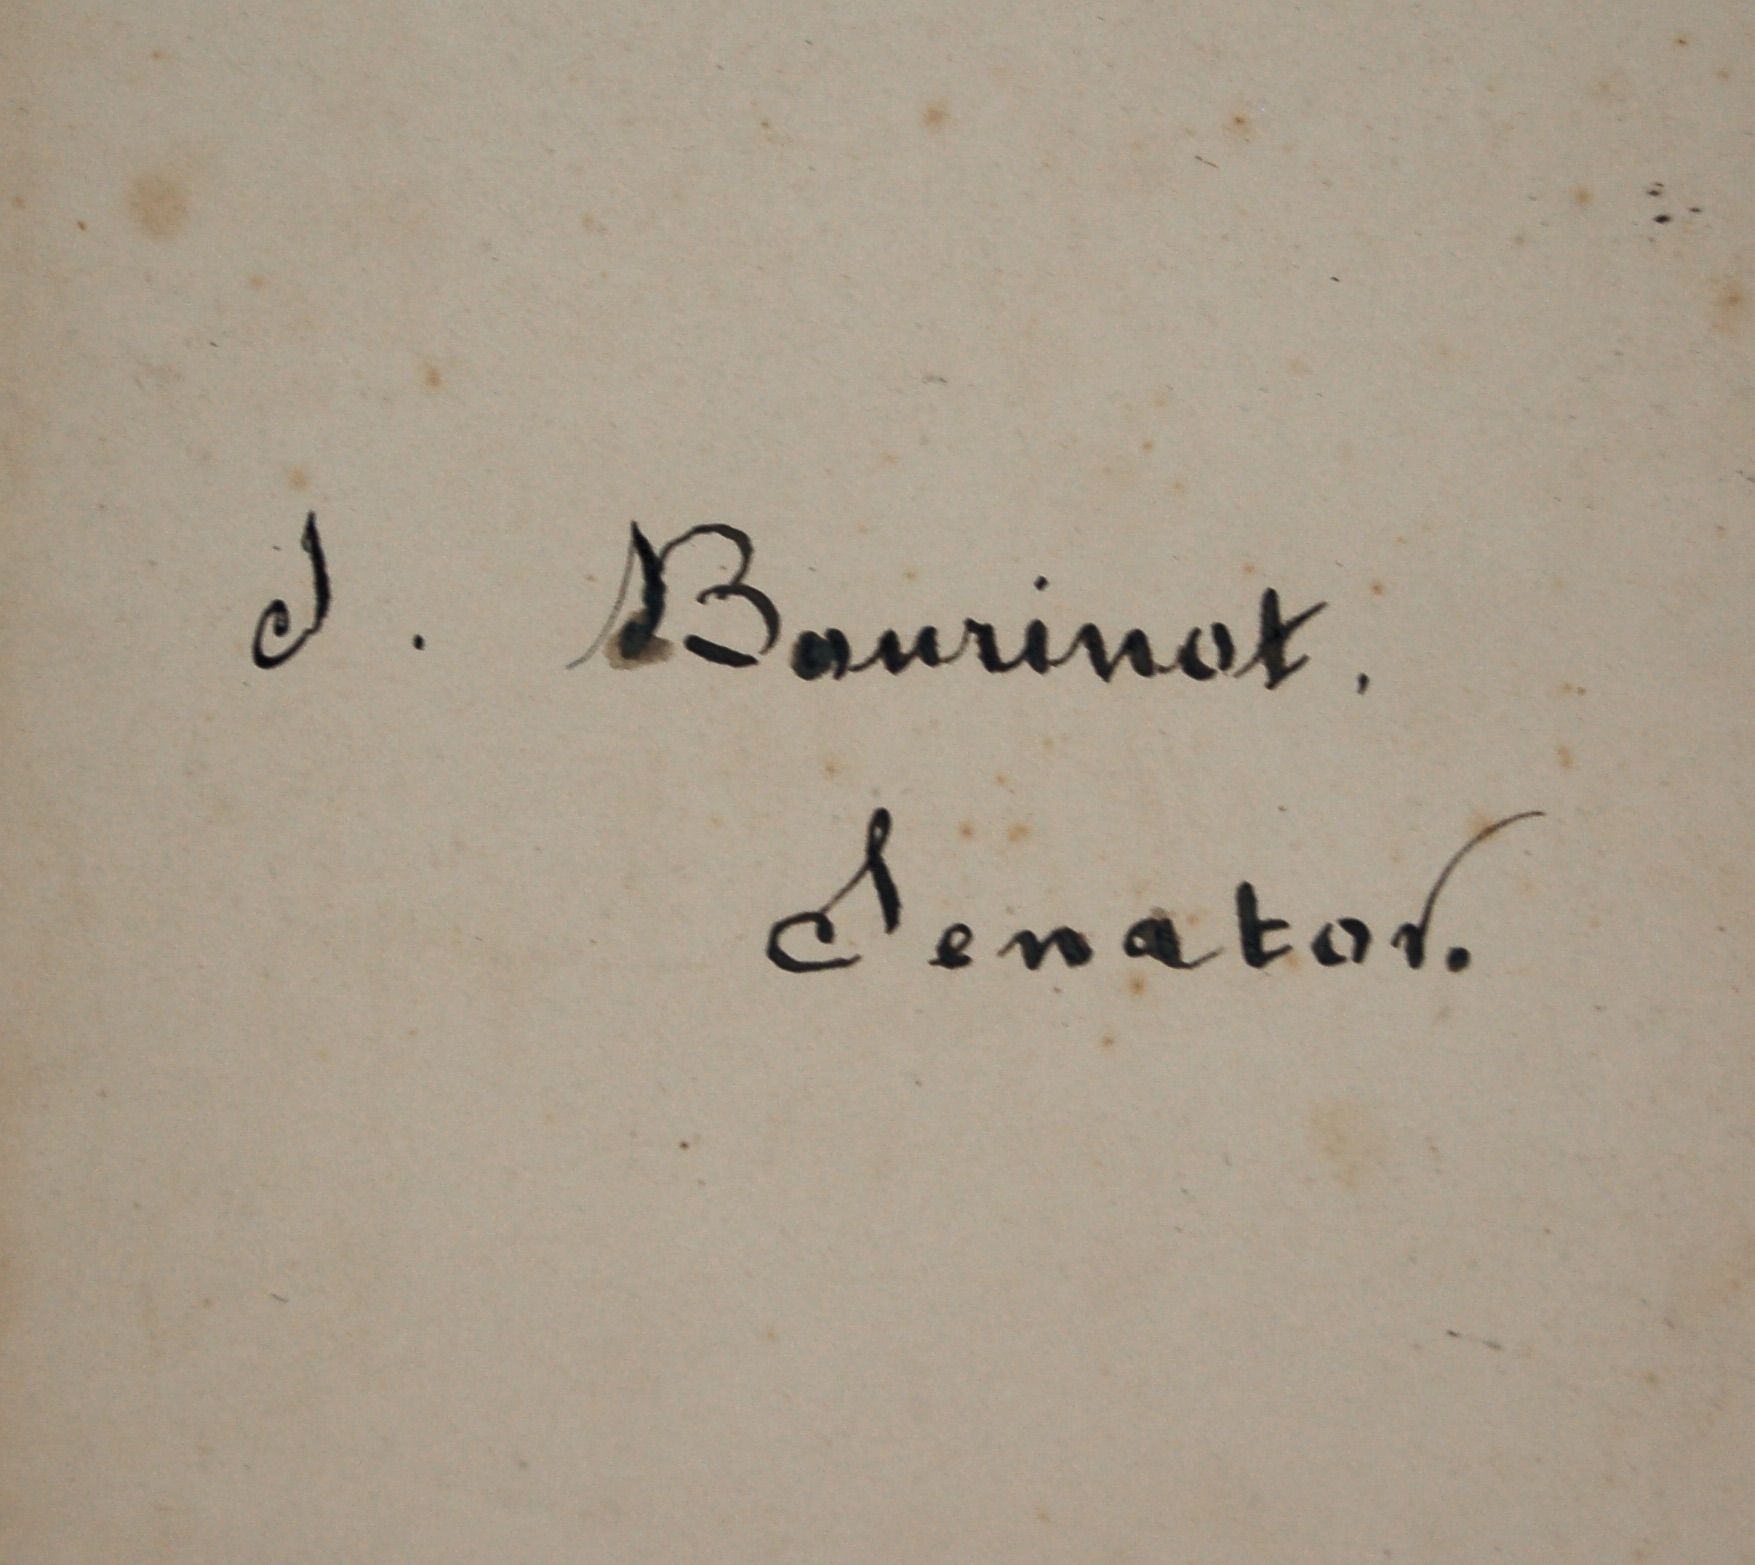 J. Bourinot.
Senator.